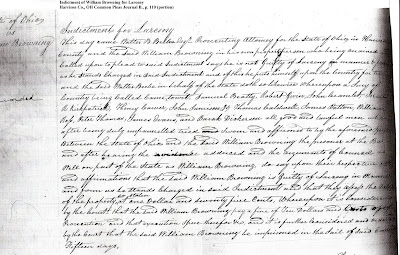 Indictment of William Browning for Larceny
Harrison Co., OH Common Pleas Journal B., p. 119 (portion)
te of Ohio
vs
Browning
Indictment for Larceny
This day came Walter B. Beebe Esqr. Prosecuting Attorney for the State of Ohio in
County and the said William Browning in his own proper person who being arraigned
called upon to plead to said Indictment says he is not Guilty of Larceny in manner &
as he stands charged in said Indictment and of this he puts himself upon the Country for tr
and the said Walter Beebe in behalf of the State doth likewise whereupon a Jury of
Country being called came Samuel Beatty, Robert Cruse, John
Kirkpatrick, Henry Cruse, John Jamison, Thomas Caldwell, James Patton, William
James Evans and Barak Dickerson all good and lawful men w
after being duly impannelled tried and sworn and affirmed to try the aforesaid
Between the State of Ohio and the said William Browning the prisoner at the Bar
and after hearing the evidence adduced and the arguments of Counsel as
Well on part of the State as William Browning do say upon their respective oaths
and affirmations that the said William Browning is Guilty of Larceny in manner
and form as he stands charged in said Indictment and that they assess the value
of the property stolen at One Dollar and Seventy five Cents, Whereupon it is considered
by the Court that the said William Browning pay a fine of Ten Dollars and Costs of
Prosecution and that execution issue therefor &c, and it is further considered and
by the Court that the said William Browning be imprisoned in the Jail of said County
Fifteen days,